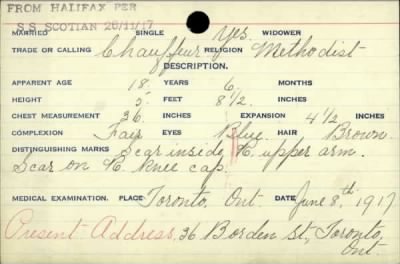 FROM HALIFAX PER
S.S. SCOTIAN 26/11/17
MARRIED SINGLE Yes. WIDOWER
TRADE OR CALLING Chauffeur RELIGION Methodist
DESCRIPTION.
APPARENT AGE 18 YEARS 6 MONTHS
HEIGHT 5 FEET 8 1/2 INCHES
CHEST MEASUREMENT 36 INCHES EXPANSION 4 1/2 INCHES
COMPLEXION Fair EYES Blue HAIR Brown
DISTINGUISHING MARKS Scar inside R. upper arm.
Scar on R. knee cap.
MEDICAL EXAMINATION. PLACE Toronto, Ont. DATE June 8th 1917
Present Address, 36 Borden St, Toronto,
Ont.